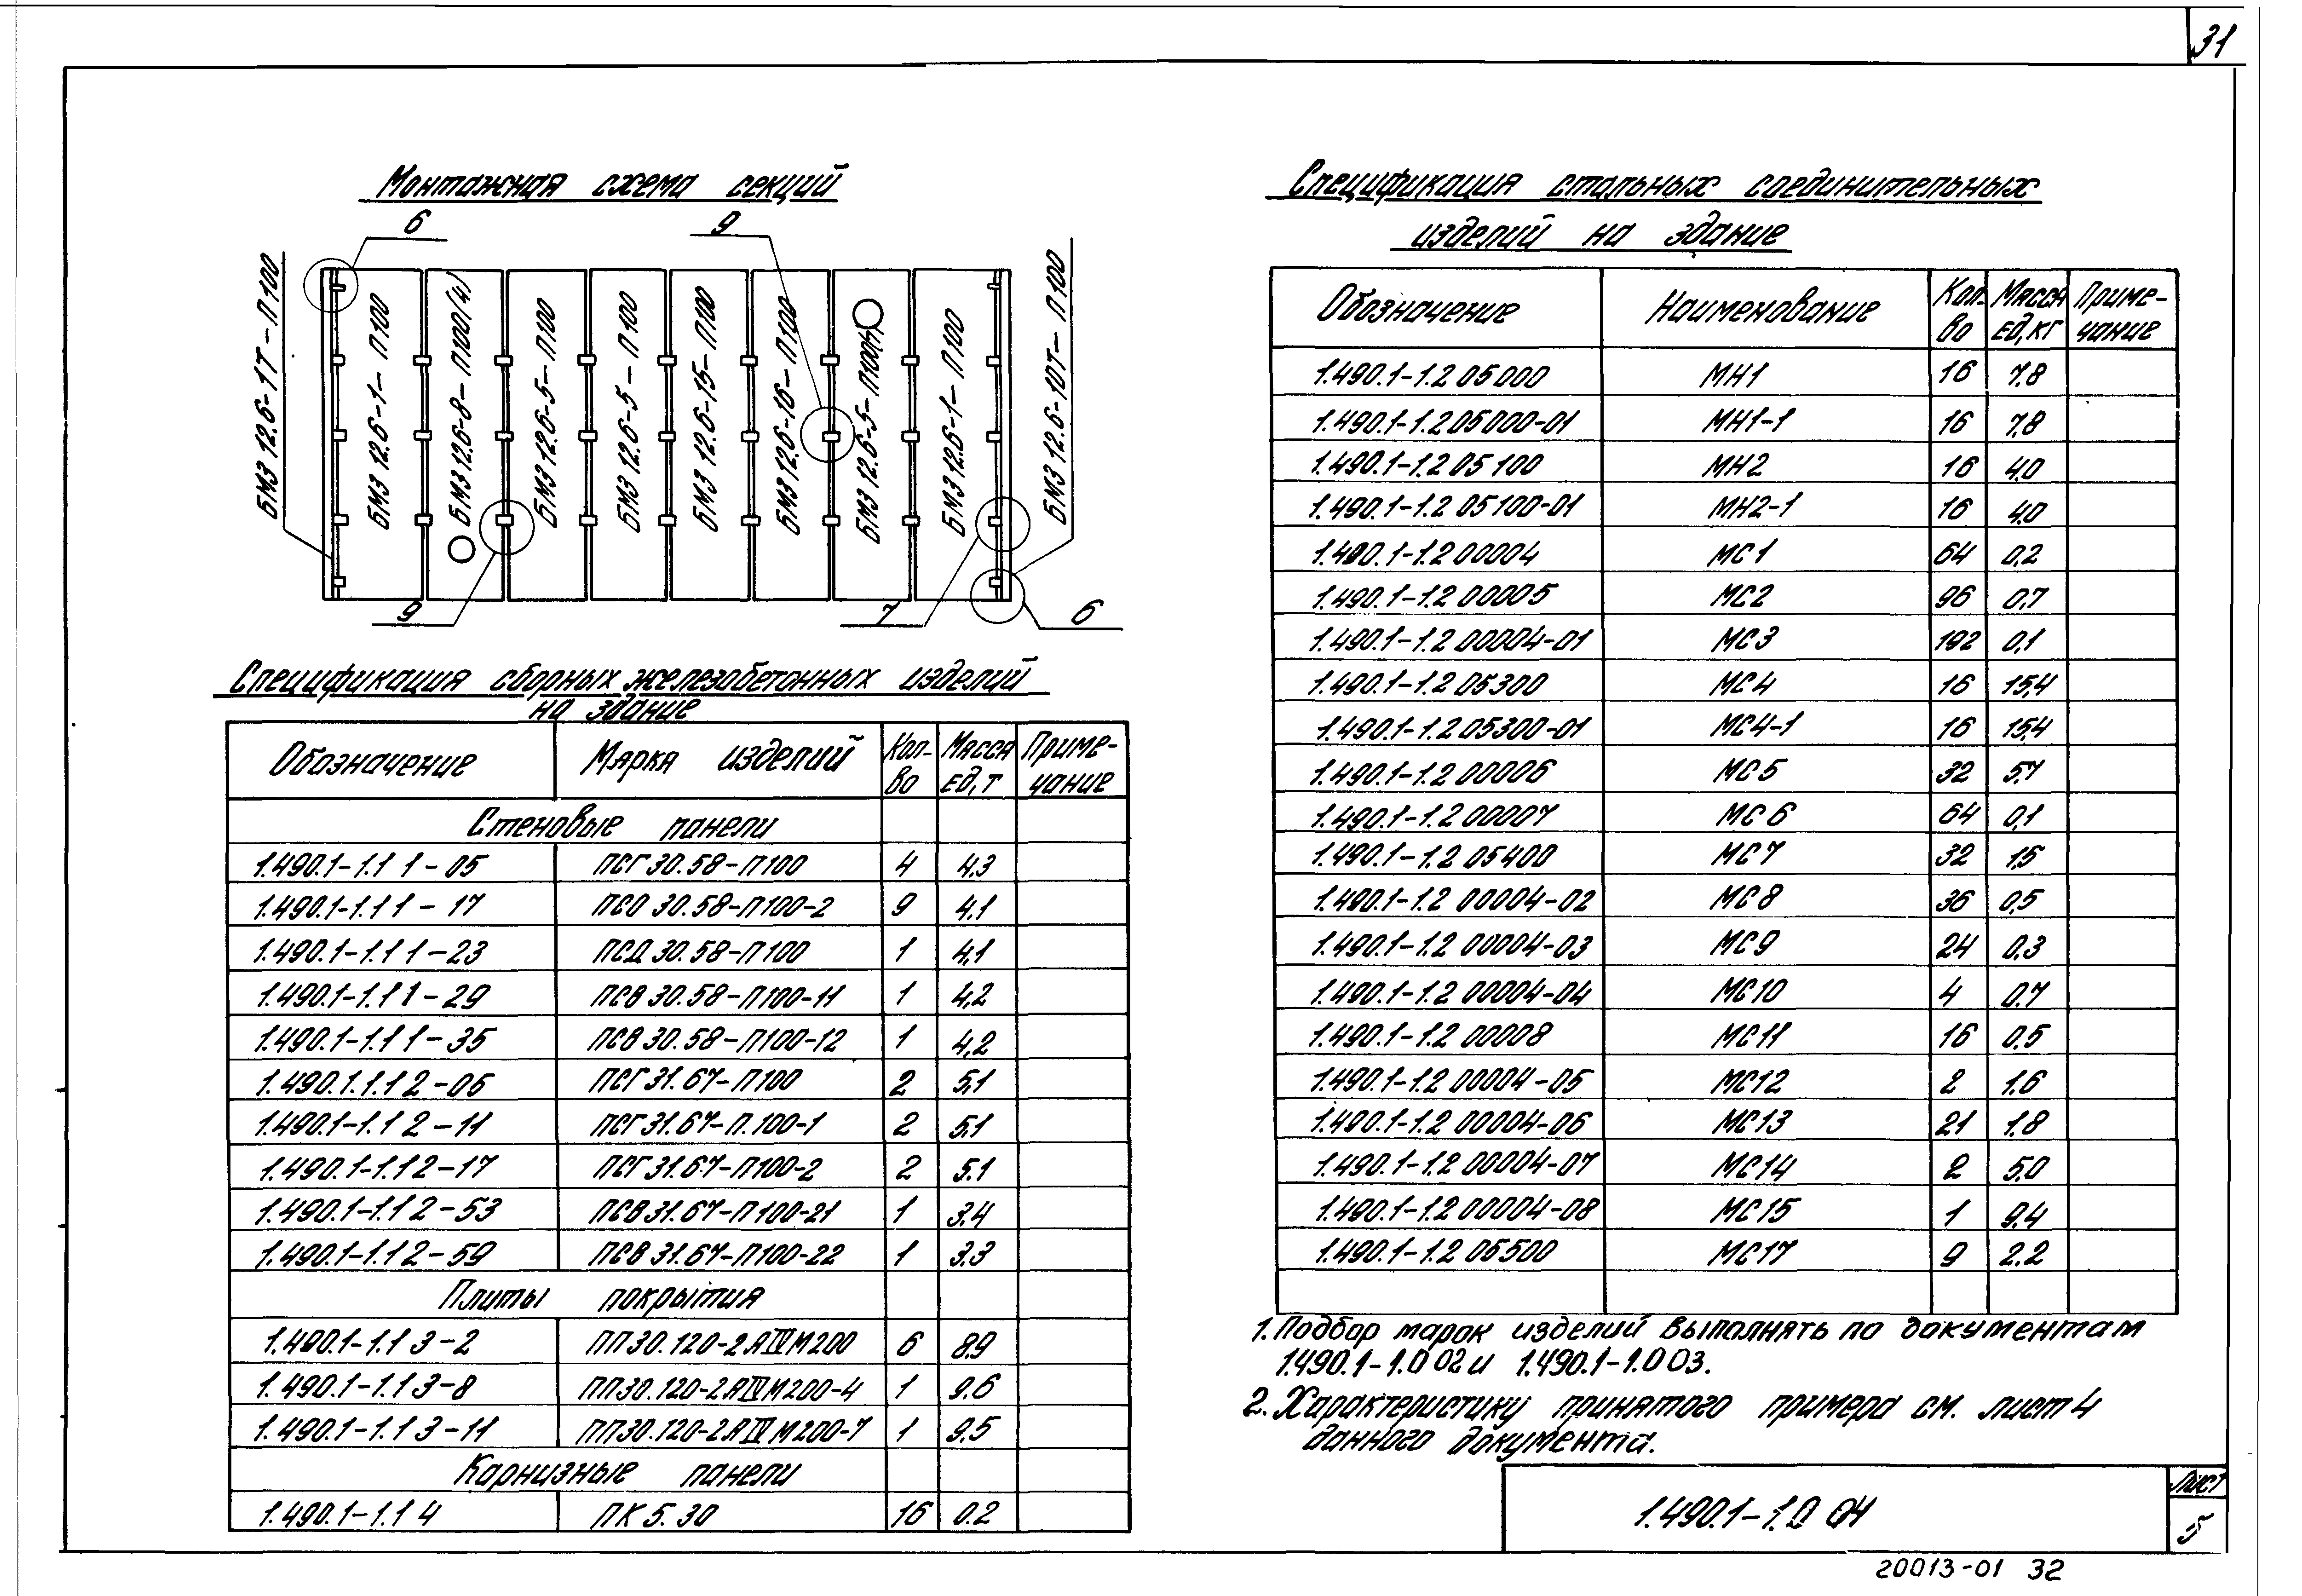 31
Монтажная схема секций
6
9
БМЗ 12.6-1Т-П100
БМЗ 12.6-1-П100
БМЗ 12.6-8-П100(4)
БМЗ 12.6-5-П100
БМЗ 12.6-5-П100
БМЗ 12.6-15-П100
БМЗ 12.6-16-П100
БМЗ 12.6-5-П100(4)
БМЗ 12.6-1-П100
БМЗ 12.6-10Т-П100
9
7
6
Спецификация сборных железобетонных изделий
на здание
Обозначение Марка изделий Кол-во Масса ед, т Приме-чание
Стеновые панели
1.490.1-1.1 1-05 ПСГ 30.58-П100 4 4.3
1.490.1-1.1 1-17 ПСО 30.58-П100-2 9 4.1
1.490.1-1.1 1-23 ПСД 30.58-П100 1 4,1
1.490.1-1.1 1-29 ПСВ 30.58-П100-11 1 4,2
1.490.1-1.1 1-35 ПСВ 30.58-П100-12 1 4,2
1.490.1.1.1 2-06 ПСГ 31.67-П100 2 5,1
1.490.1-1.1 2-11 ПСГ 31.67-П.100-1 2 5,1
1.490.1-1.1 2-17 ПСГ 31.67-П100-2 2 5.1
1.490.1-1.1 2-53 ПСВ 31.67-П100-21 1 3.4
1.490.1-1.1 2-59 ПСВ 31.67-П100-22 1 3.3
Плиты покрытия
1.490.1-1.1 3-2 ПП30.120-2АIVМ200 6 8,9
1.490.1-1.1 3-8 ПП30.120-2АIVМ200-4 1 9.6
1.490.1-1.1 3-11 ПП30.120-2АIVМ200-7 1 9.5
Карнизные панели
1.490.1-1.1 4 ПК 5.30 16 0.2
Спецификация стальных соединительных
изделий на здание
Обозначение Наименование Кол-во Масса ед, кг Приме-чание
1.490.1-1.2 05000 МН1 16 7.8
1.490.1-1.2 05000-01 МН1-1 16 7,8
1.490.1-1.2 05100 МН2 16 4.0
1.490.1-1.2 05100-01 МН2-1 16 4.0
1.490.1-1.2 00004 МС1 64 0,2
1.490.1-1.2 00005 МС2 96 0,7
1.490.1-1.2 00004-01 МС3 192 0,1
1.490.1-1.2 05300 МС4 16 15,4
1.490.1-1.2 05300-01 МС4-1 16 15,4
1.490.1-1.2 00006 МС5 32 5,7
1.490.1-1.2 00007 МС6 64 0,1
1.490.1-1.2 05400 МС7 32 1,5
1.490.1-1.2 00004-02 МС8 36 0,5
1.490.1-1.2 00004-03 МС9 24 0.3
1.490.1-1.2 00004-04 МС10 4 0.7
1.490.1-1.2 00008 МС11 16 0.5
1.490.1-1.2 00004-05 МС12 2 1.6
1.490.1-1.2 00004-06 МС13 21 1.8
1.490.1-1.2 00004-07 МС14 2 5.0
1.490.1-1.2 00004-08 МС15 1 9.4
1.490.1-1.2 05500 МС17 9 2.2
1. Подбор марок изделий выполнять по документам
1.490.1-1.0 02 и 1.490.1-1.0 03.
2. Характеристику принятого примера см. лист 4
данного документа.
1.490.1-1.0 04
Лист
5
20013-01 32